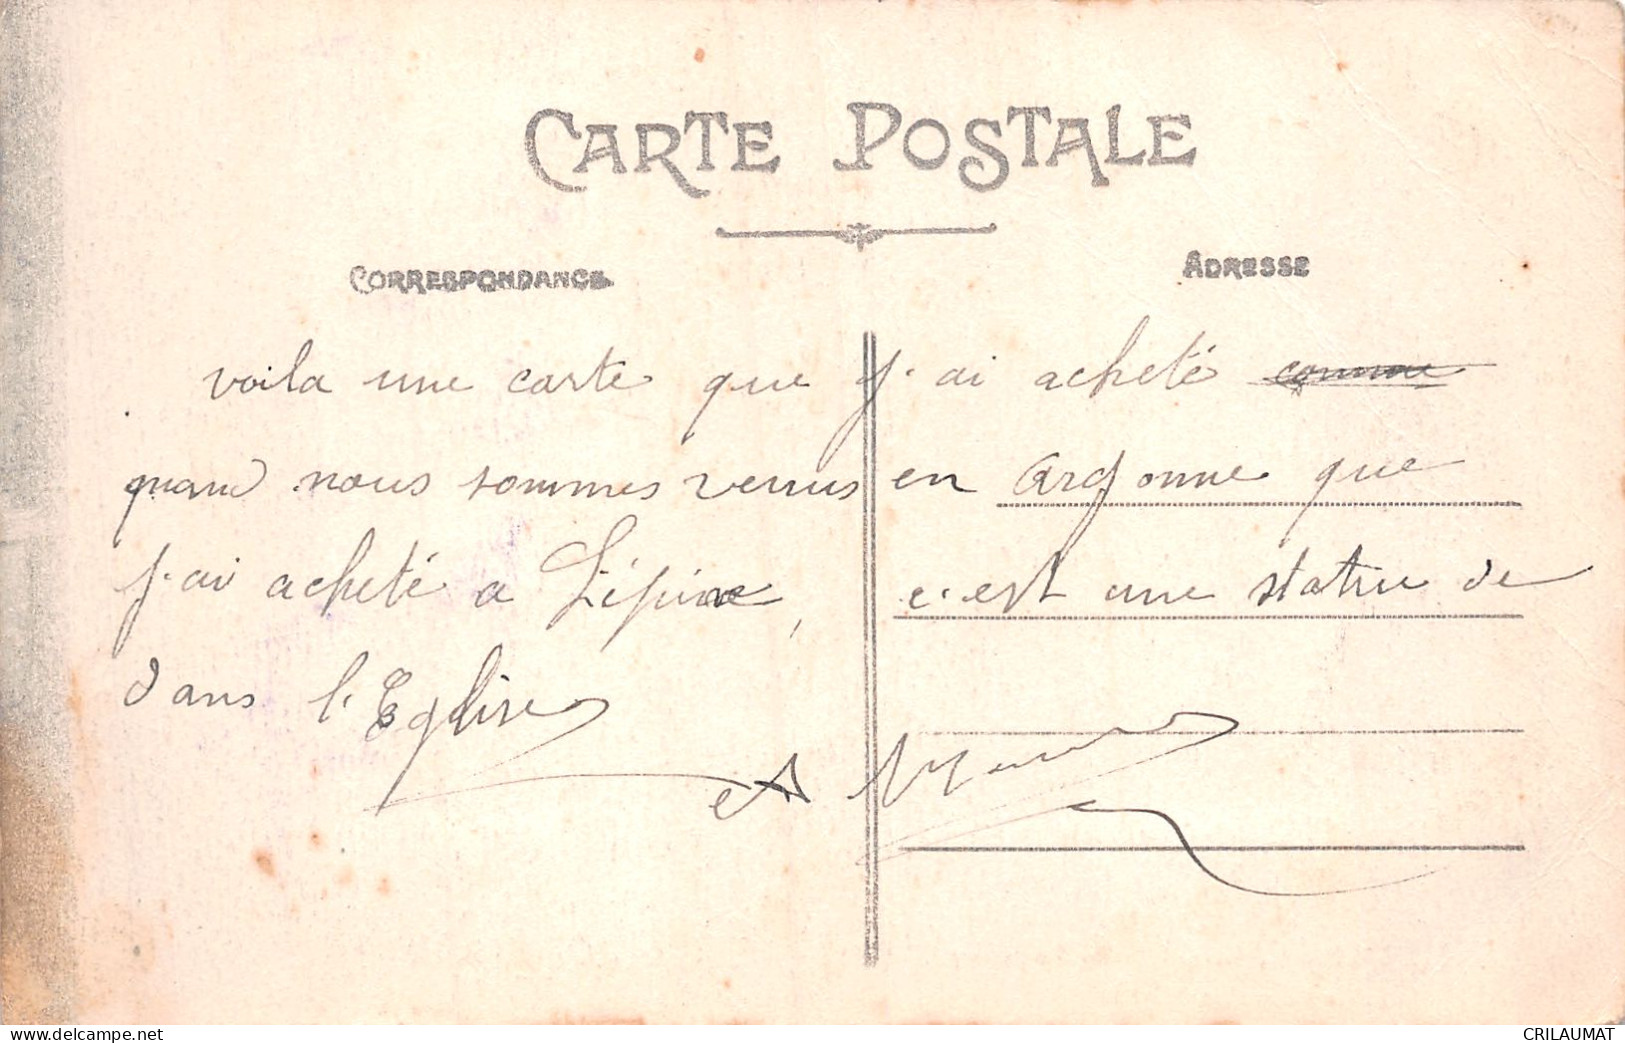 CARTE POSTALE
CORRESPONDANCE
ADRESSE
voila une carte que j'ai acheté comme
quand nous sommes venus en Argonne que
j'ai acheté a L'épine, c'est une statue de
dans l'Eglise
www.delcampe.net
CRILAUMAT